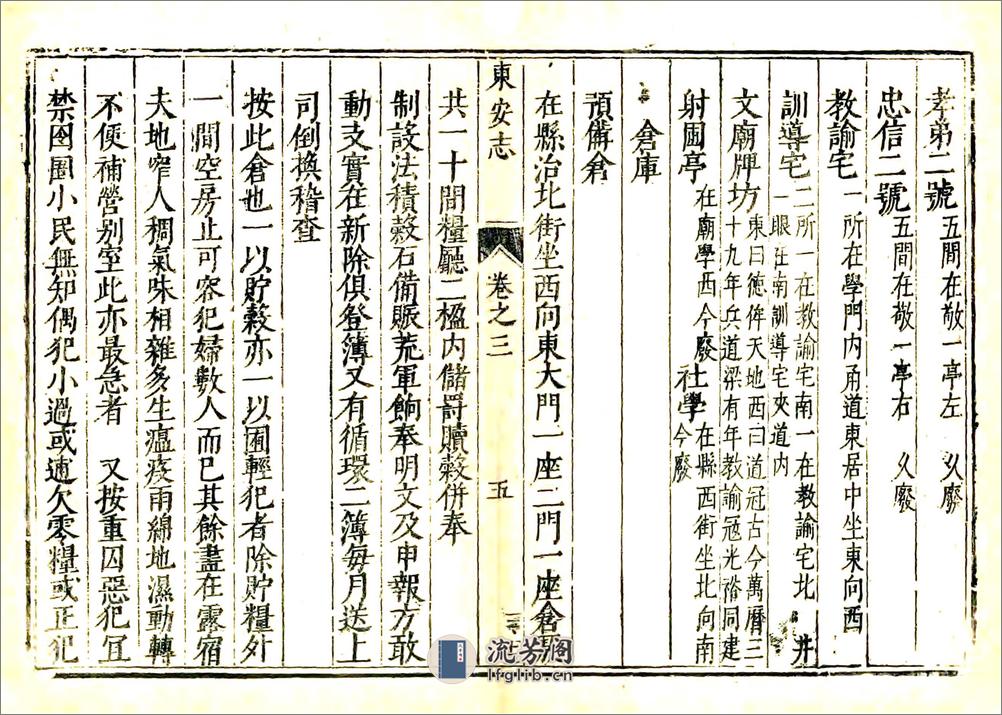 孝弟二號 五間在敬一亭左 乆廢
忠信二號 五間在敬一亭右 乆廢
教諭宅 一所在學門内甬道東居中坐東向西
訓導宅 二所一在教諭宅南一在教諭宅北 井
一眼在南訓導宅夾道内
文廟牌坊 東曰德侔天地西曰道冠古今萬曆三
十九年兵道梁有年教諭冦光裕同建
射圃亭 在廟學西今廢 社學 在縣西街坐北向南
今廢
倉庫
預備倉
在縣治北街坐西向東大門一座二門一座倉
東安志 卷之三 五
共一十間糧廳二楹内儲罸贖榖併奉
制設法積榖石備賑荒軍餉奉明文及申報方敢
動支實在新除俱登簿又有循環二簿毎月送上
司倒換稽查
按此倉也一以貯榖亦一以囤輕犯者除貯糧外
一間空房止可容犯婦數人而已其餘盡在露宿
夫地窄人稠氣味相雜多生瘟疫雨綿地濕動轉
不便補營别室此亦最急者 又按重囚惡犯冝
禁囹圄小民無知偶犯小過或逋欠零糧或正犯
流芳阁
lfglib.cn